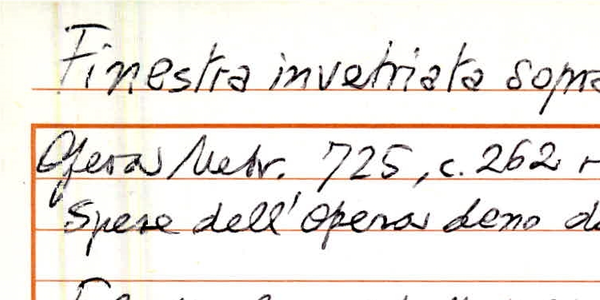 Finestra invetriata sopra
Opera Metr. 725, c. 262 r
Spese dell'Opera deno d